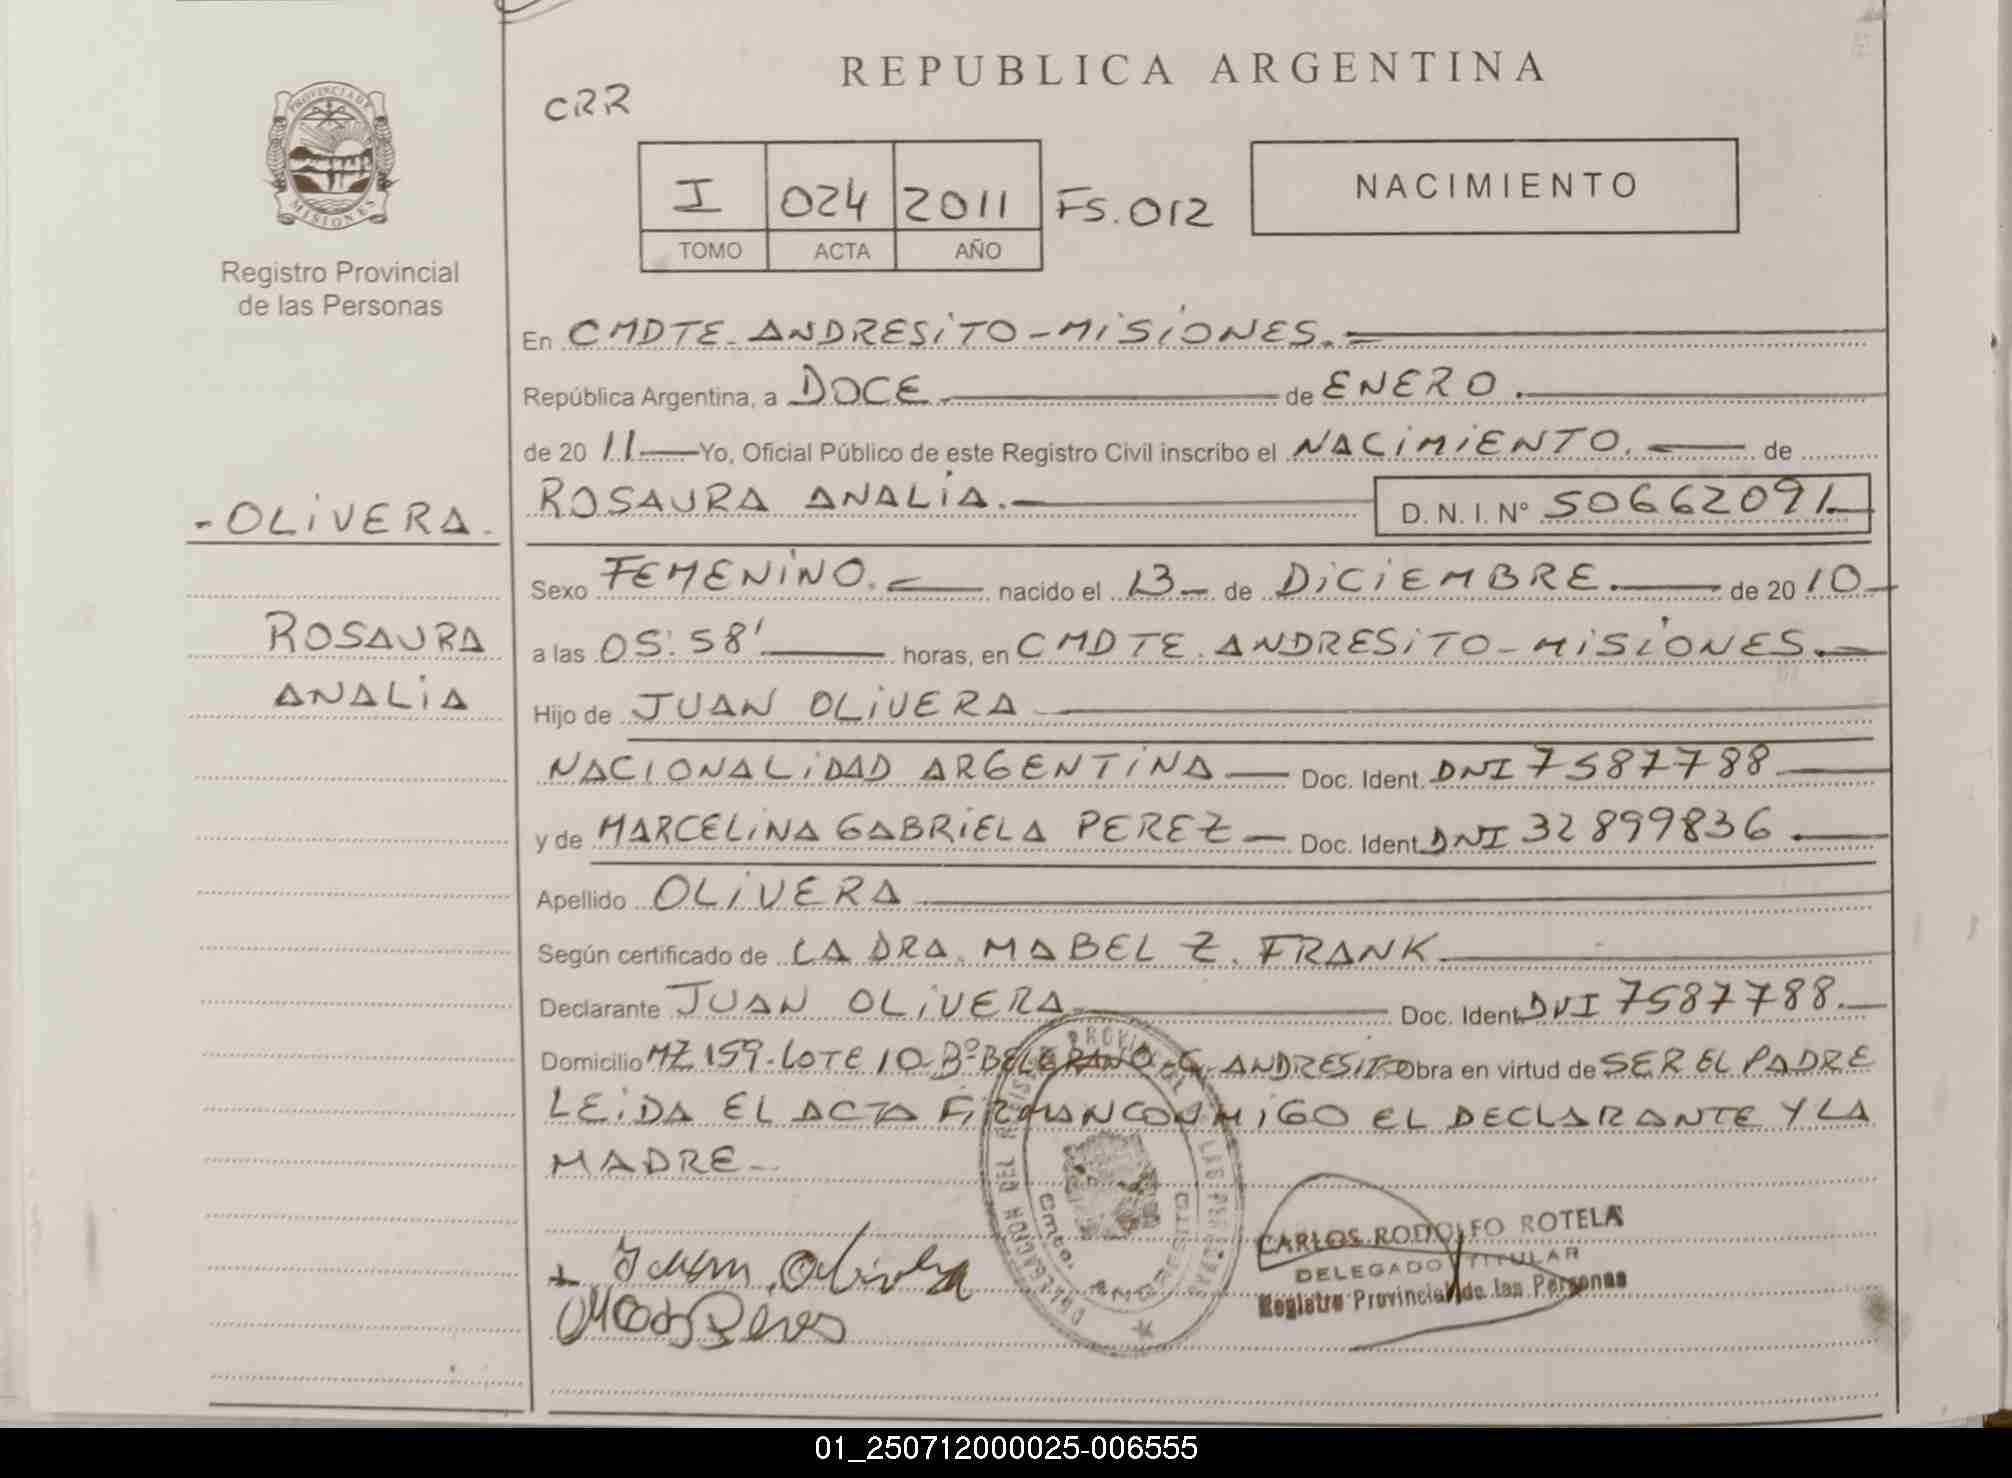 REPUBLICA ARGENTINA
CRR
PROVINCIA DE
MISIONES
Registro Provincial
de las Personas
I 024 2011 FS. 012
TOMO ACTA AÑO
NACIMIENTO
En CMDTE. ANDRESiTO - MiSiONES.
República Argentina, a DOCE de ENERO.
de 20 11 Yo, Oficial Público de este Registro Civil inscribo el NACiMiENTO. de
- OLiVERA.
ROSAURA ANALiA. D. N. I. N° 50662091
Sexo FEMENiNO. nacido el 13 de DiCiEMBRE. de 20 10
ROSAURA
a las 05:58' horas, en CMDTE. ANDRESiTO - MiSiONES.
ANALiA
Hijo de JUAN OLiVERA
NACIONALiDAD ARGENTiNA Doc. Ident. DNI 7587788
y de MARCELiNA GABRiELA PEREZ Doc. Ident. DNI 32899836
Apellido OLiVERA
Según certificado de LA DRA. MABEL Z. FRANK
Declarante JUAN OLiVERA Doc. Ident. DNI 7587788.
Domicilio MZ 159. LOTE 10 B° BELGRANO - C. ANDRESiTO Obra en virtud de SER EL PADRE
LEiDA EL ACTA FiRMAN CONMiGO EL DECLARANTE Y LA
MADRE
DELEGACION DEL REGISTRO PROVINCIAL DE LAS PERSONAS
Cmte. ANDRESITO
Juan Olivera
CARLOS RODOLFO ROTELA
DELEGADO TITULAR
Registro Provincial de las Personas
01_250712000025-006555